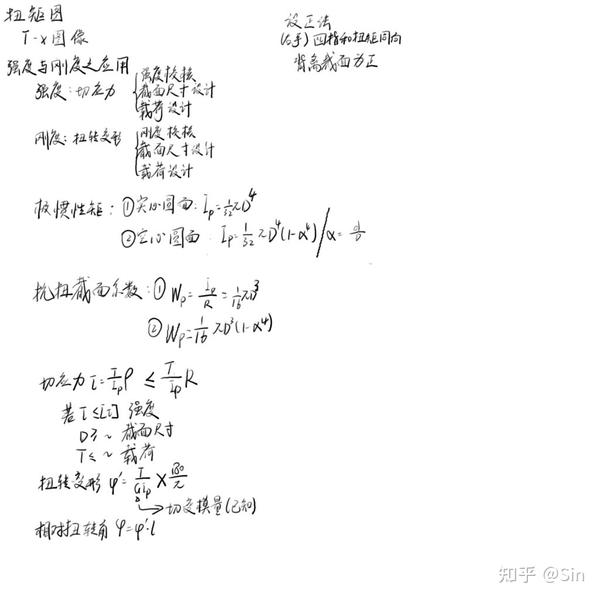 扭矩图
T-x图像
强度与刚度之应用
强度:切应力 { 强度校核
截面尺寸设计
载荷设计
刚度:扭转变形 { 刚度校核
截面尺寸设计
载荷设计
极惯性矩:①实心圆面:Ip=1/32 πD^4
②空心圆面:Ip=1/32 πD^4(1-α^4) / α=d/D
抗扭截面系数:① Wp=Ip/R=1/16 πD^3
② Wp=1/16 πD^3(1-α^4)
切应力 τ=T/Ip ρ ≤ T/Ip R
若 τ≤[τ] 强度
D≥~ 截面尺寸
T≤~ 载荷
扭转变形 φ'=T/GIp × 180/π
→切变模量(已知)
相对扭转角 φ=φ'·l
设正法
(右手)四指和扭矩同向
背离截面为正
知乎 @Sin